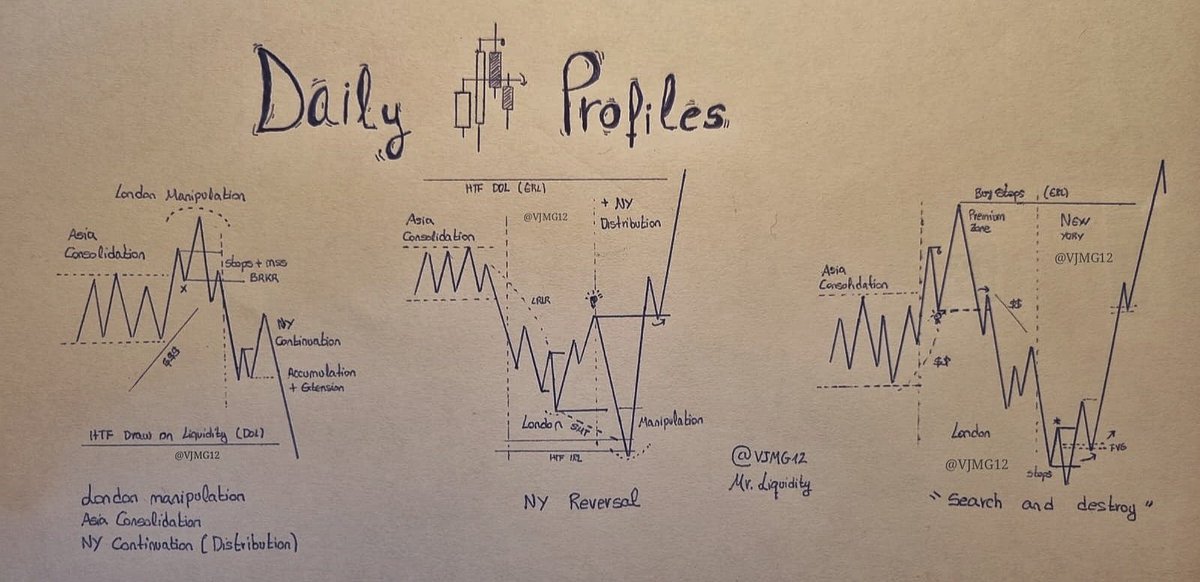 Daily Profiles
London Manipulation
Asia
Consolidation
Stops + MSS
BRKR
x
$$$
NY
Continuation
Accumulation
+ Extension
HTF Draw on Liquidity (DOL)
@VJMG12
London manipulation
Asia Consolidation
NY Continuation (Distribution)
HTF DOL (ERL)
@VJMG12
+ NY
Distribution
Asia
Consolidation
LRLR
London
SMT
Manipulation
HTF IRL
NY Reversal
@VJMG12
Mr. Liquidity
Buy Stops (ERL)
Premium
Zone
NEW
YORK
@VJMG12
Asia
Consolidation
$$
$$
London
@VJMG12
Stops
FVG
"Search and destroy"